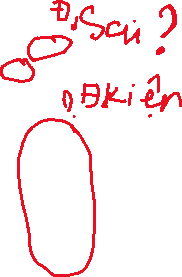 Đ, Sai ?
Đkiện